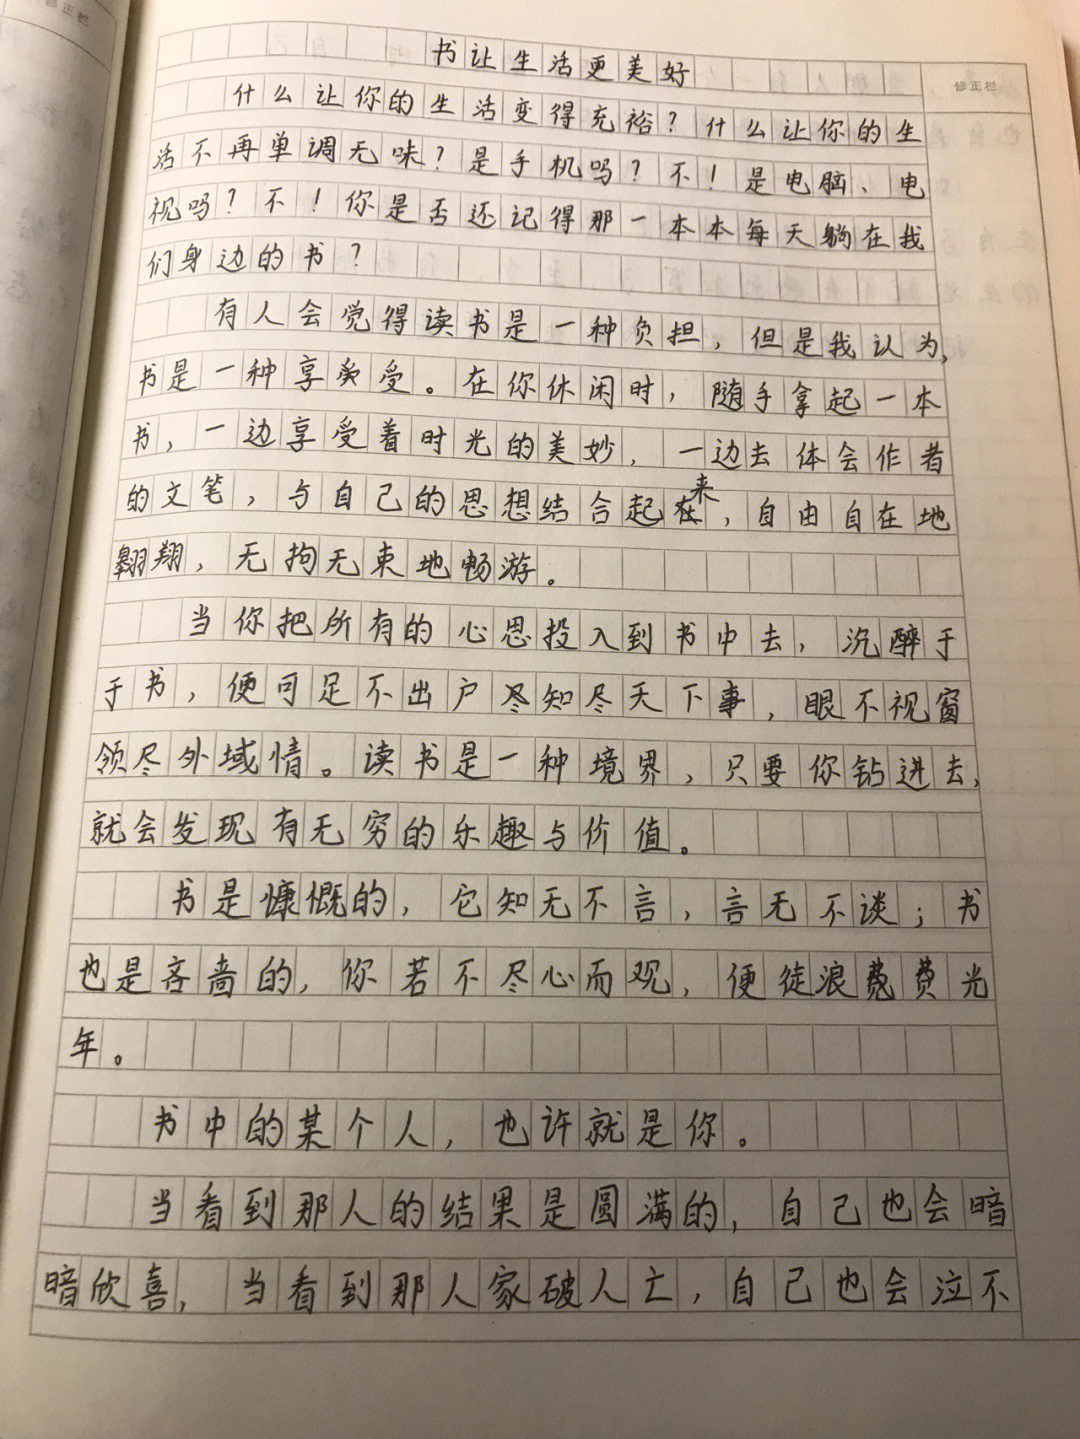 修正栏
书让生活更美好
修正栏
什么让你的生活变得充裕?什么让你的生
活不再单调无味?是手机吗?不!是电脑、电
视吗?不!你是否还记得那一本本每天躺在我
们身边的书?
有人会觉得读书是一种负担,但是我认为,
书是一种享受受。在你休闲时,随手拿起一本
书,一边享受着时光的美妙,一边去体会作者
来
的文笔,与自己的思想结合起在,自由自在地
翱翔,无拘无束地畅游。
当你把所有的心思投入到书中去,沉醉于
于书,便可足不出户尽知尽天下事,眼不视窗
领尽外域情。读书是一种境界,只要你钻进去,
就会发现有无穷的乐趣与价值。
书是慷慨的,它知无不言,言无不谈;书
也是吝啬的,你若不尽心而观,便徒浪费费光
年。
书中的某个人,也许就是你。
当看到那人的结果是圆满的,自己也会暗
暗欣喜,当看到那人家破人亡,自己也会泣不